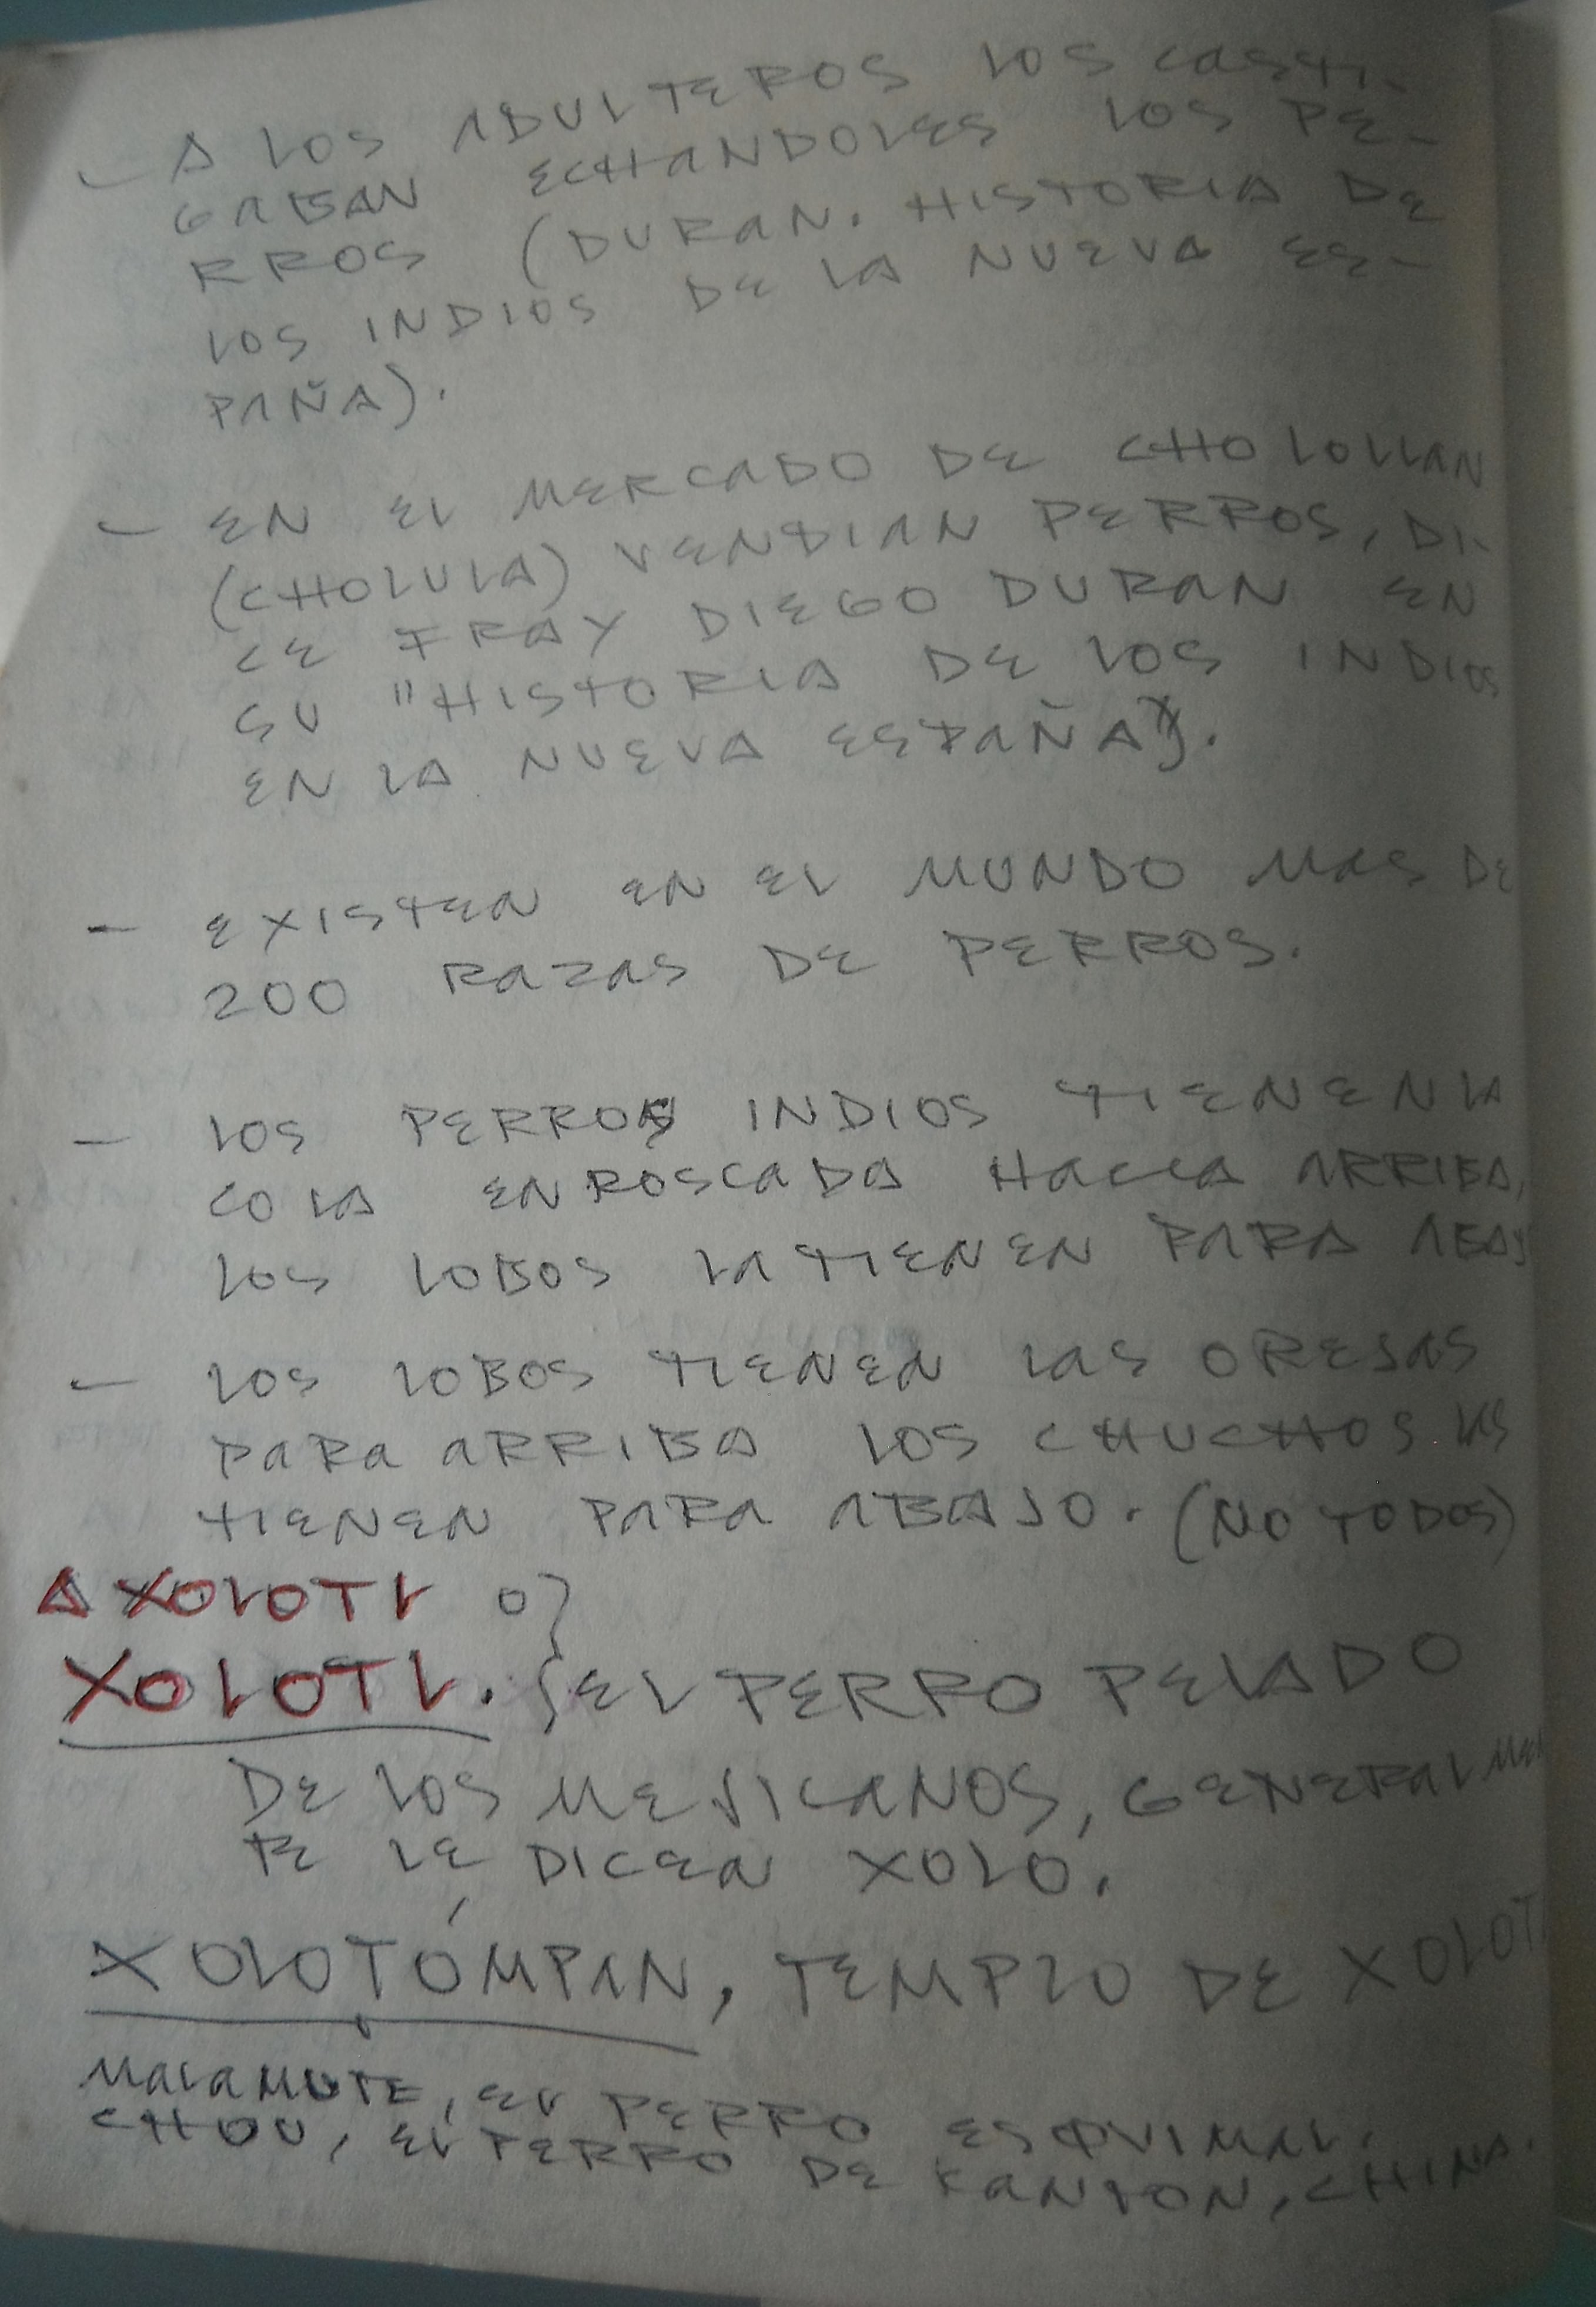 - A LOS ADULTEROS LOS CASTI-
GABAN ECHANDOLES LOS PE-
RROS (DURAN. HISTORIA DE
LOS INDIOS DE LA NUEVA ES-
PAÑA).
- EN EL MERCADO DE CHOLOLLAN
(CHOLULA) VENDIAN PERROS, DI-
CE FRAY DIEGO DURAN EN
SU "HISTORIA DE LOS INDIOS
EN LA NUEVA ESPAÑA").
- EXISTEN EN EL MUNDO MAS DE
200 RAZAS DE PERROS.
- LOS PERROS INDIOS TIENEN LA
COLA ENROSCADA HACIA ARRIBA,
LOS LOBOS LA TIENEN PARA ABAJ
- LOS LOBOS TIENEN LAS OREJAS
PARA ARRIBA LOS CHUCHOS LAS
TIENEN PARA ABAJO. (NO TODOS)
AXOLOTL O
XOLOTL. EL PERRO PELADO
DE LOS MEJICANOS, GENERALMEN
TE LE DICEN XOLO.
XOLOTÓMPAN, TEMPLO DE XOLOTL
MALAMUTE, EL PERRO ESQUIMAL.
CHOU, EL PERRO DE KANTON, CHINA.